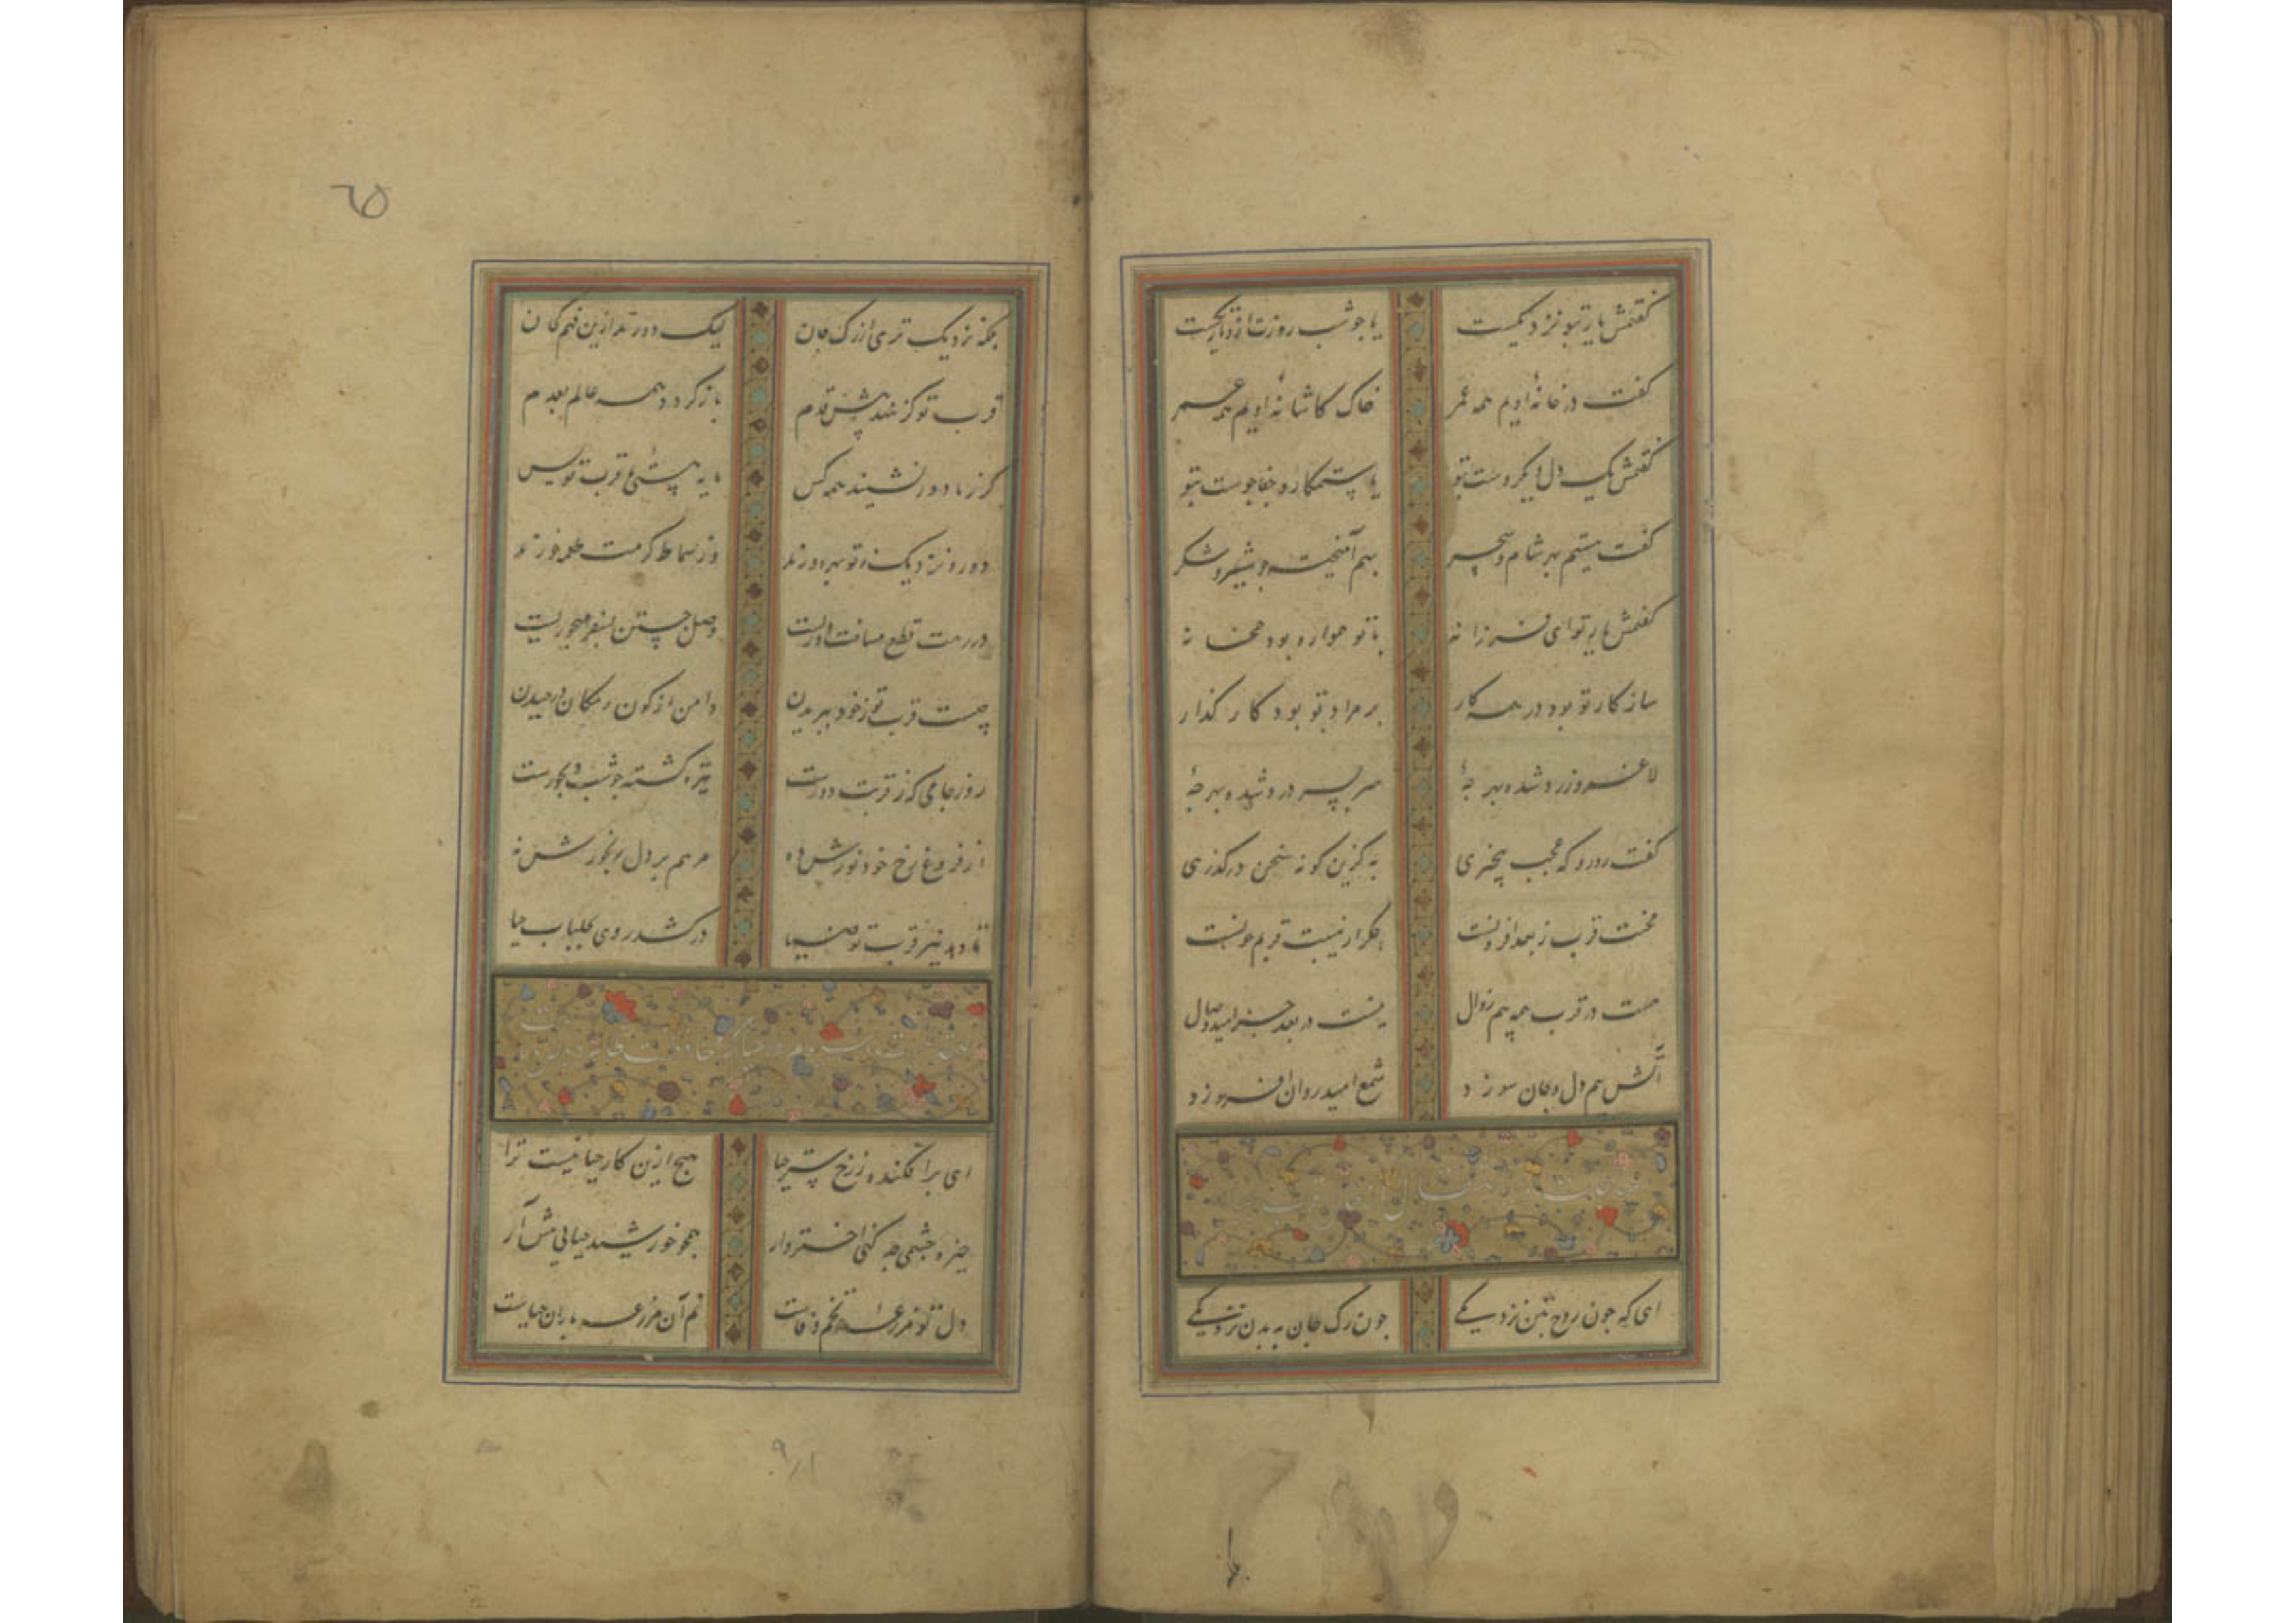 گفتمش یار بتو نزدیکست
یا چو شب روزت ازو تاریکست
گفت در خانهٔ اویم همه عمر
خاک کاشانهٔ اویم همه عمر
گفتمش یکدل و یکروست بتو
یا ستمکار و جفاجوست بتو
گفت هستیم بهر شام و سحر
بهم آمیخته چو شیر و شکر
گفتمش یار تو ای فرزانه
با تو همواره بود همخانه
سازکار تو بود در همه کار
بر مراد تو بود کار گذار
لاغر و زرد شده بهر چهٔ
سر بسر درد شده بهر چهٔ
گفت رو رو که عجب بیخبری
به کزین گونه سخن درگذری
محنت قرب ز بعد افزونست
جگر از هیبت قربم خونست
هست در قرب همه بیم زوال
نیست در بعد جز امید وصال
آتش بیم دل و جان سوزد
شمع امید روان افروزد
ای که چون روح بتن نزدیکی
چون رگ جان به بدن نزدیکی
بلکه نزدیک تری از رگ جان
لیک دورند ازین فهم کسان
قرب تو کز شهد پیش قدم
باز گردد همه عالم بعدم
گر ز ما دور نشیند همه کس
مایهٔ هستی ما قرب تو بس
دور و نزدیک ز تو بهره ورند
وز سماط کرمت طعمه خورند
در رهت قطع مسافت دوریست
وصل جستن بسفر مهجوریست
چیست قرب تو ز خود ببریدن
دامن از کون و مکان درچیدن
روز جامی که ز قربت دورست
تیره گشته چو شب دیجورست
از فروغ رخ خود نورش ده
مرهم بر دل رنجورش نه
تا دهد نیز قرب تو ضیا
در کشد روی بجلباب حیا
ای برافکنده ز رخ ستر حیا
هیچ ازین کار حیا نیست ترا
خیره چشمی چه کنی اختروار
همچو خورشید حیایی پیش آر
دل تو مزرعهٔ تخم وفاست
نم آن مزرعه باران حیاست
۶۵